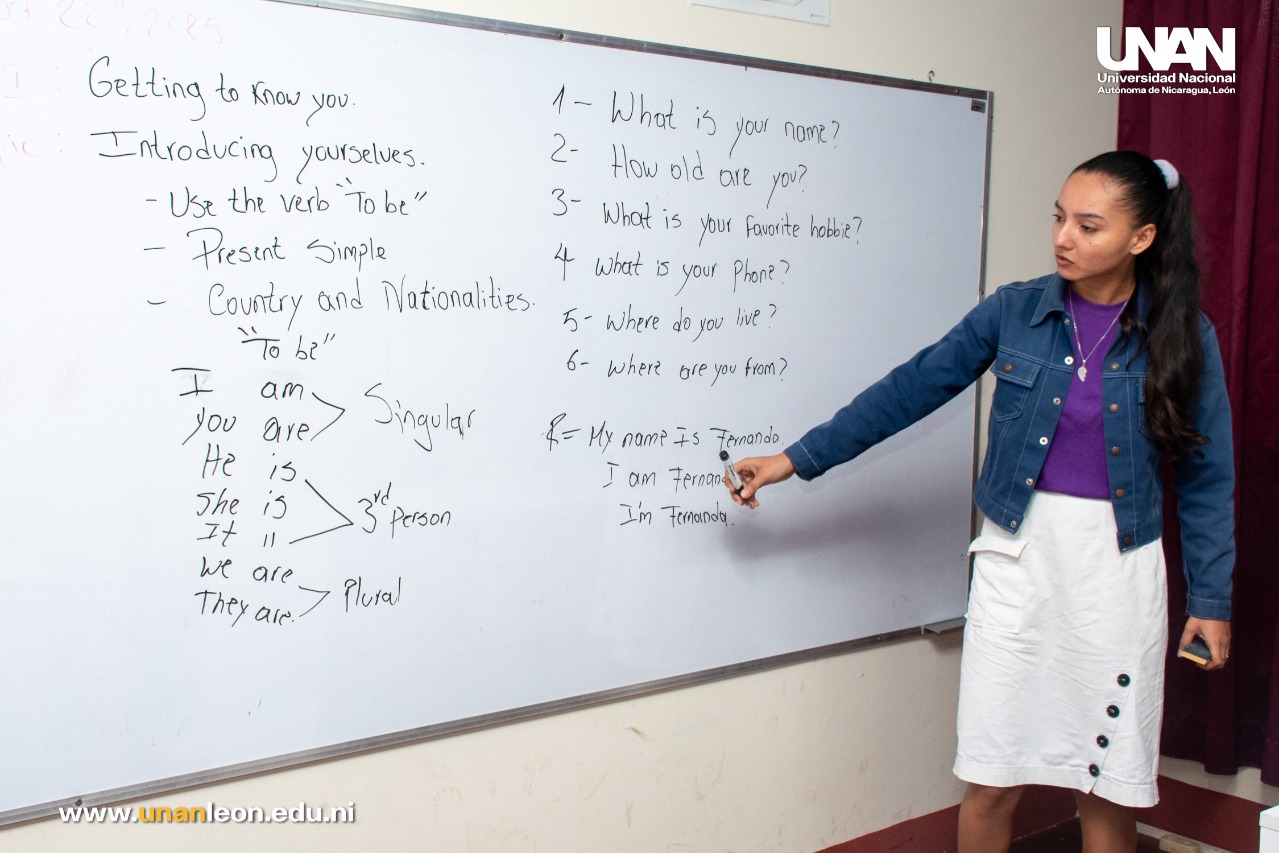 22", 2025
I :
Getting to Know you.
Introducing yourselves.
- Use the verb "To be"
- Present Simple
- Country and Nationalities.
"To be"
I am
you are
Singular
He is
She is
It "
3rd Person
We are
They are.
Plural
1- What is your name?
2- How old are you?
3- What is your favorite hobbie?
4 What is your Phone?
5- Where do you live?
6- Where are you from?
R= My name Is Fernanda.
I am Fernan
I'm Fernanda.
UNAN
Universidad Nacional
Autónoma de Nicaragua, León
www.unanleon.edu.ni